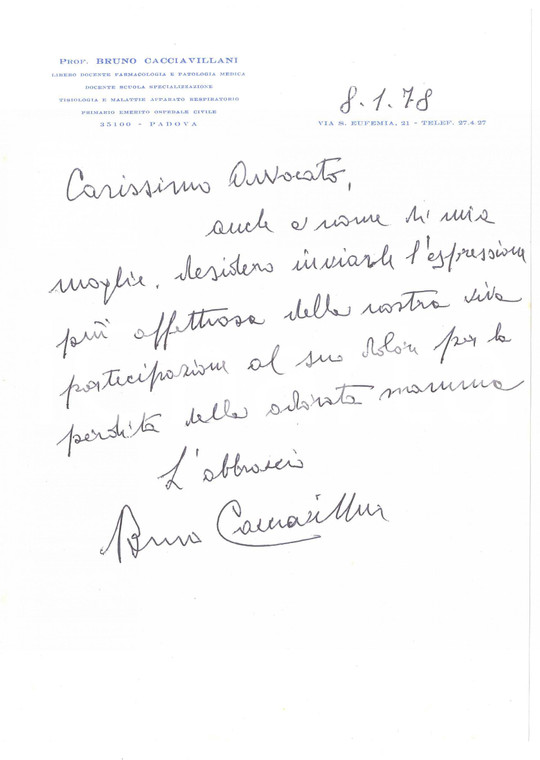 PROF. BRUNO CACCIAVILLANI
LIBERO DOCENTE FARMACOLOGIA E PATOLOGIA MEDICA
DOCENTE SCUOLA SPECIALIZZAZIONE
TISIOLOGIA E MALATTIE APPARATO RESPIRATORIO
PRIMARIO EMERITO OSPEDALE CIVILE
35100 - PADOVA
8.1.78
VIA S. EUFEMIA, 21 - TELEF. 27.4.27
Carissimo Avvocato,
anche a nome di mia
moglie, desidero inviarle l'espressione
più affettuosa della nostra viva
partecipazione al suo dolore per la
perdita della adorata mamma
L'abbraccio
Bruno Cacciavillani